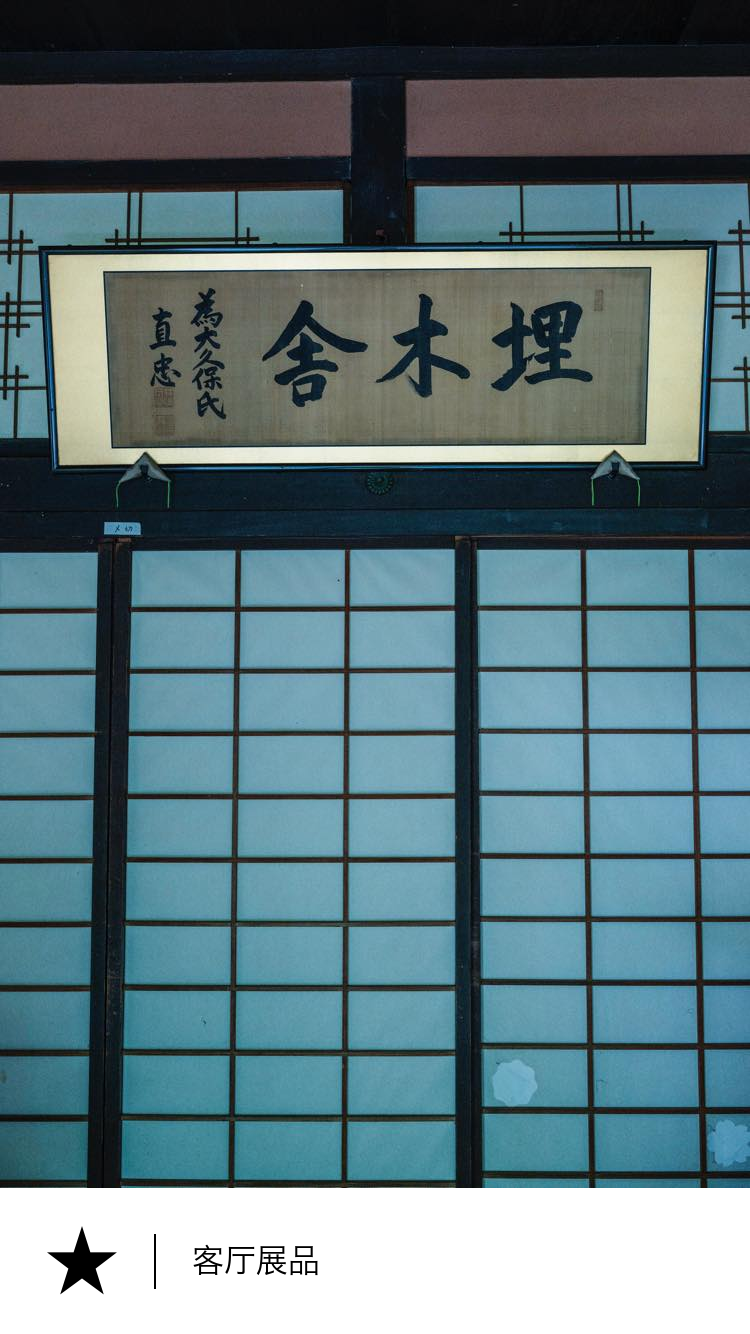 埋木舎
為大久保氏
直忠
〆切
客厅展品